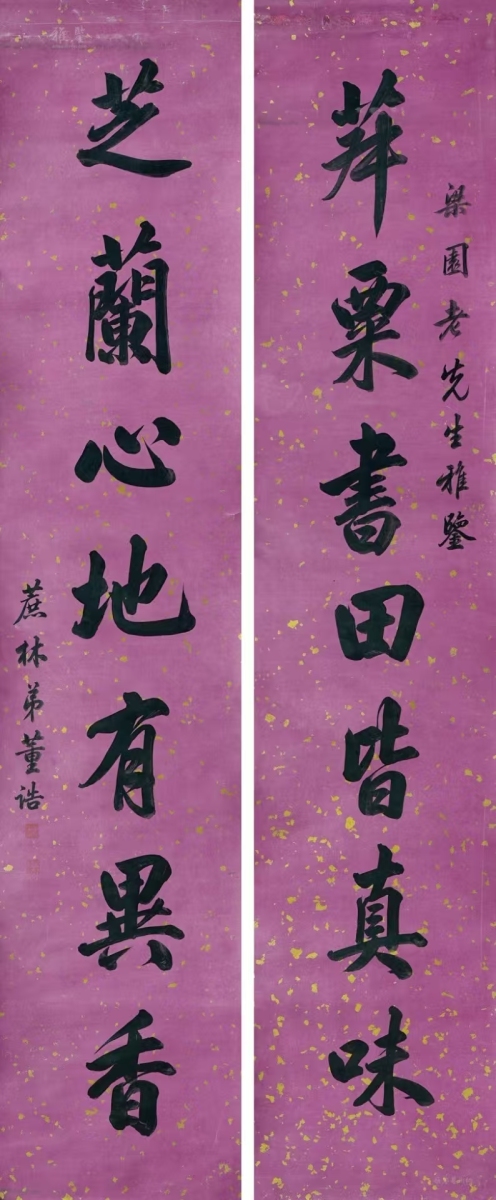 梁園老先生雅鑒
菽粟書田皆真味
芝蘭心地有異香
蔗林弟董誥